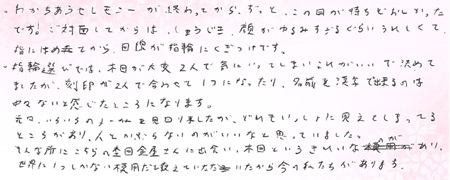 ・わかちあうセレモニーが終わってから、ずっと、この日が待ちどおしかった
です。ご対面してからは、しょうじき、顔がゆるみすぎるぐらいうれしくて、
指にはめたてから、目線が指輪にくぎづけです。
・指輪選びでは、木目が大変2人で気に入ってしまいこれがいいで決めて
ましたが、刻印が2人で合わせて1つになったり、名前を漢字で出来るのは
少ないと感じたところになります。
元々、いろいろのメーカーを見回りましたが、どれもいっしょに見えてしまってる
ところがあり、人とかぶらないのがいいなと思っていました。
そんな所にこちらの杢目金屋さんに出会い、木目というきれいながあり、
世界に1つしかない使用だと教えていただいたから今の私たちがあります。